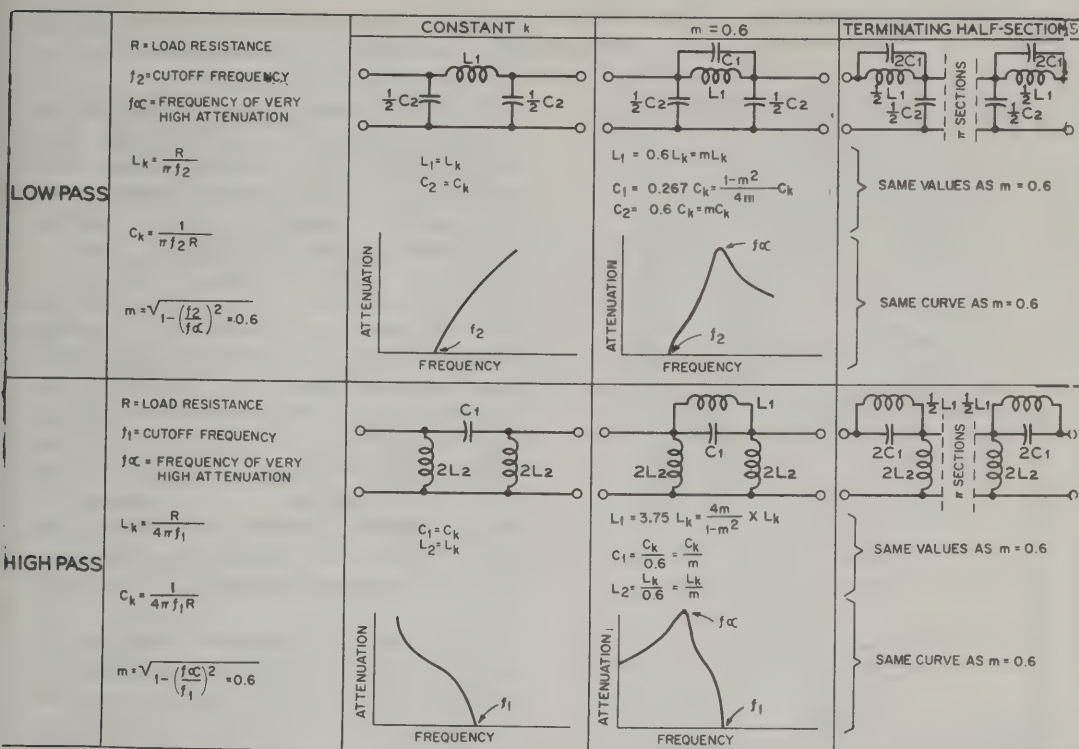 CONSTANT k
m = 0.6
TERMINATING HALF-SECTIONS
LOW PASS
R = LOAD RESISTANCE
f2 = CUTOFF FREQUENCY
f∝ = FREQUENCY OF VERY
HIGH ATTENUATION
Lk = R / πf2
Ck = 1 / πf2R
m = √1-(f2/f∝)² = 0.6
L1
½C2
½C2
L1 = Lk
C2 = Ck
ATTENUATION
f2
FREQUENCY
C1
L1
½C2
½C2
L1 = 0.6 Lk = mLk
C1 = 0.267 Ck = 1-m²/4m Ck
C2 = 0.6 Ck = mCk
ATTENUATION
f∝
f2
FREQUENCY
2C1
½L1
½C2
π SECTIONS
2C1
½L1
½C2
SAME VALUES AS m = 0.6
SAME CURVE AS m = 0.6
HIGH PASS
R = LOAD RESISTANCE
f1 = CUTOFF FREQUENCY
f∝ = FREQUENCY OF VERY
HIGH ATTENUATION
Lk = R / 4πf1
Ck = 1 / 4πf1R
m = √1-(f∝/f1)² = 0.6
C1
2L2
2L2
C1 = Ck
L2 = Lk
ATTENUATION
f1
FREQUENCY
L1
C1
2L2
2L2
L1 = 3.75 Lk = 4m/1-m² X Lk
C1 = Ck/0.6 = Ck/m
L2 = Lk/0.6 = Lk/m
ATTENUATION
f∝
f1
FREQUENCY
½L1 ½L1
2C1
2L2
π SECTIONS
2C1
2L2
SAME VALUES AS m = 0.6
SAME CURVE AS m = 0.6